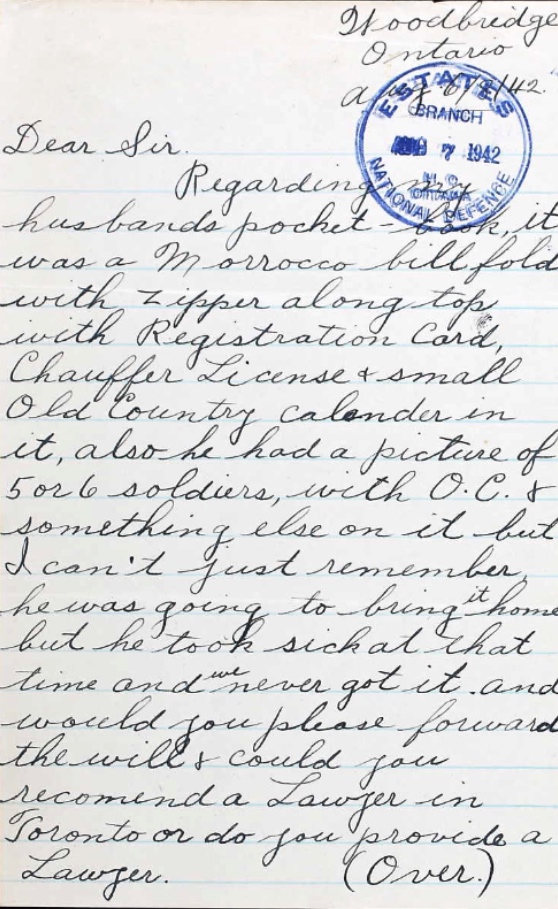 Woodbridge
Ontario
Aug 6/8/42.
ESTATES
BRANCH
AUG 7 1942
OTTAWA
NATIONAL DEFENCE
Dear Sir.
Regarding my
husbands pocket-book, it
was a Morrocco billfold
with zipper along top
with Registration Card,
Chauffer License & small
Old Country calender in
it, also he had a picture of
5 or 6 soldiers, with O.C. &
something else on it but
I can't just remember,
he was going to bring it home
but he took sick at that
time and we never got it. and
would you please forward
the will & could you
recomend a Lawyer in
Toronto or do you provide a
Lawyer. (Over.)